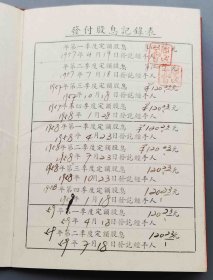 發付股息記錄表
年第一季度定額股息
1957年4月19日發訖經手人
年第二季度定額股息
1957年7月18日發訖經手人
1957年第三季度定額股息 ¥120.00元
1957年10月18日發訖經手人
1957年第四季度定額股息 ¥120.00元
1958年1月28日發訖經手人
1958年第一季度定額股息 ¥120.00元
1958年4月23日發訖經手人
1958年第二季度定額股息 120.00元
1958年7月23日發訖經手人
1958年第三季度定額股息 120.00元
1958年10月23日發訖經手人
1958年第四季度定額股息 120.00元
年1月18日發訖經手人
59年第一季度定額股息 120.00元
59年4月18日發訖經手人
59年第二季度定額股息 120.00元
59年7月18日發訖經手人